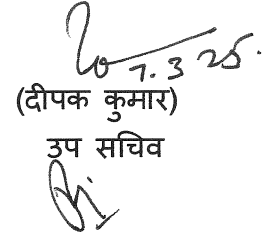 7.3.25.
(दीपक कुमार)
उप सचिव